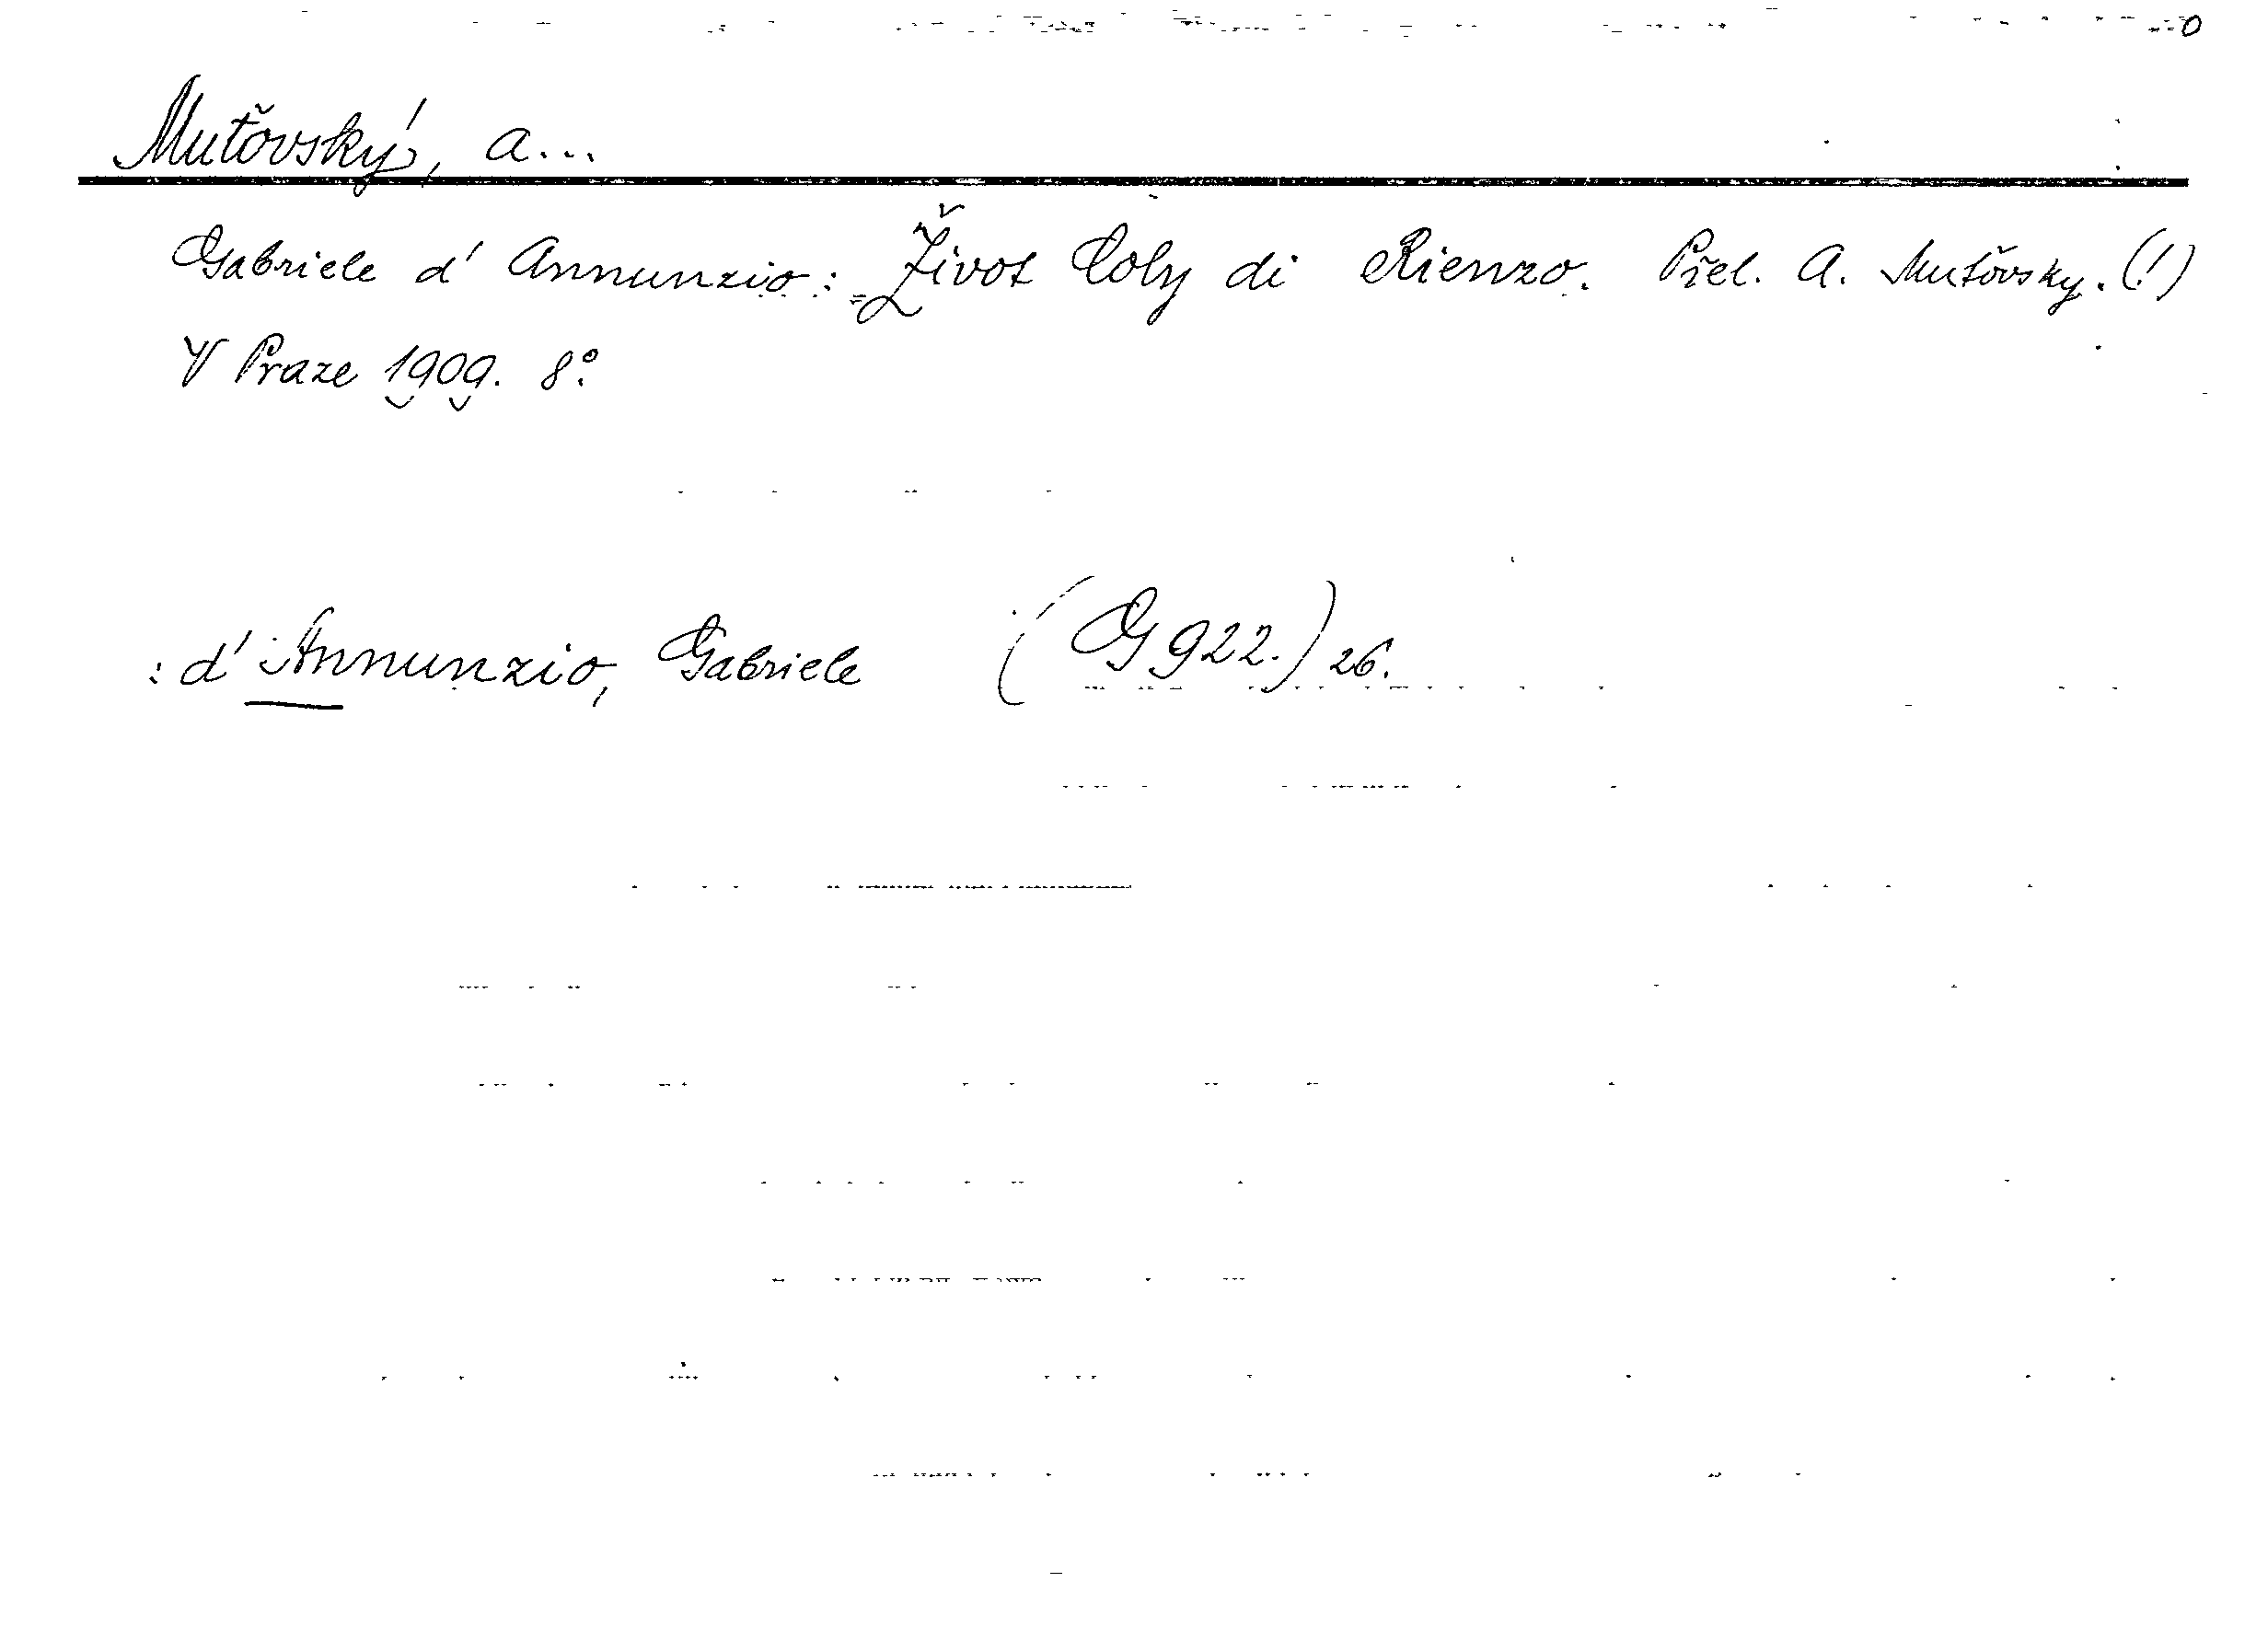 Muťovský, A...
Gabriele d' Annunzio: Život Coly di Rienzo. Přel. A. Muťovsky. (!)
V Praze 1909. 8°.
: d' Annunzio, Gabriele (G 922.) 26.